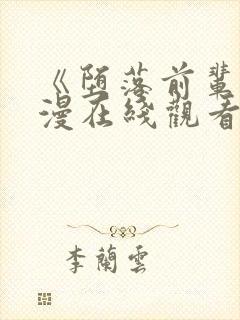 《堕落前輩
漫在綫觀看
李蘭雲